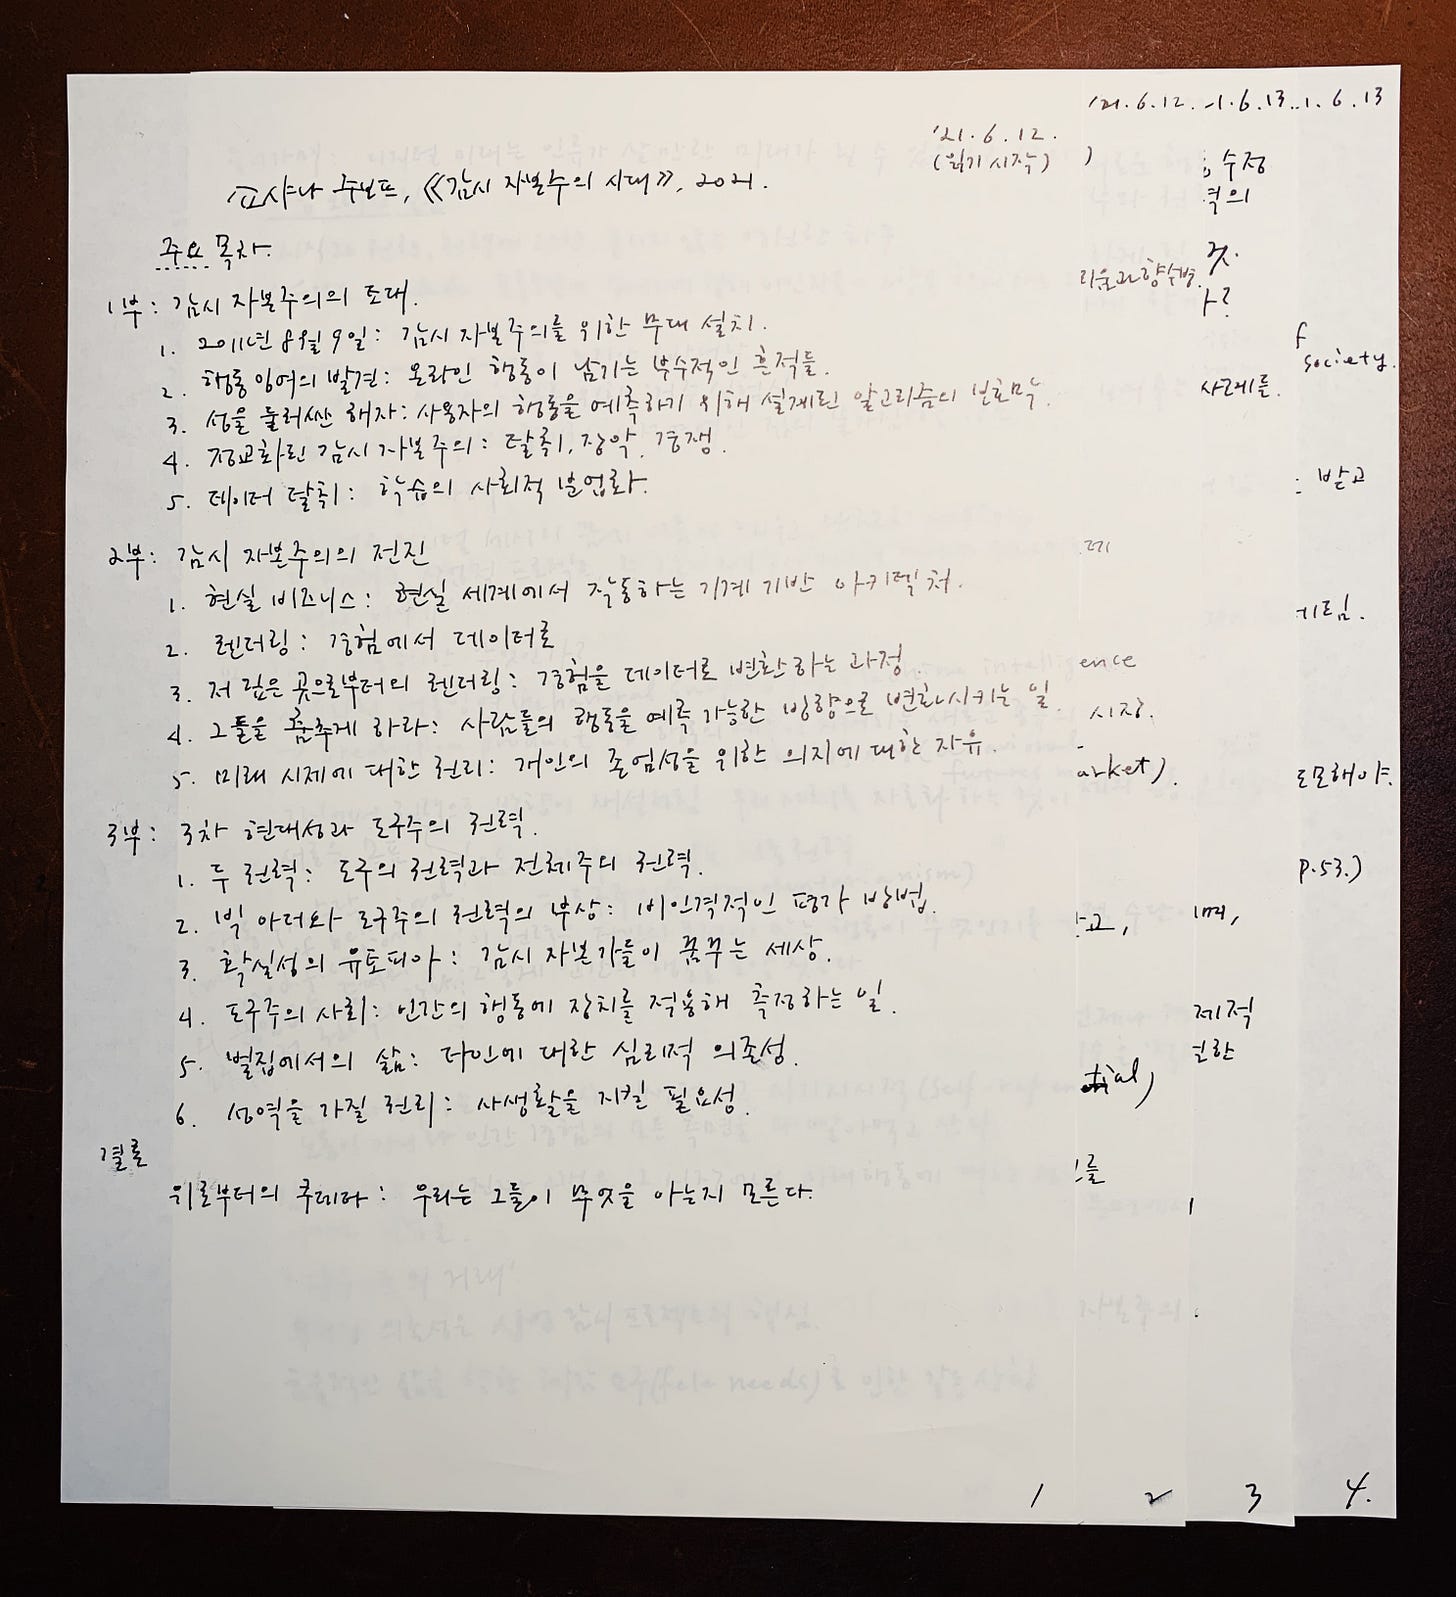 '21.6.12.
(읽기 시작)
쇼샤나 주보프, 《감시 자본주의 시대》, 2021.
주요 목차.
1부: 감시 자본주의의 토대.
1. 2011년 8월 9일: 감시 자본주의를 위한 무대 설치.
2. 행동 잉여의 발견: 온라인 행동이 남기는 부수적인 흔적들.
3. 성을 둘러싼 해자: 사용자의 행동을 예측하기 위해 설계된 알고리즘의 보호막.
4. 정교화된 감시 자본주의: 탈취, 장악, 경쟁.
5. 데이터 탈취: 학습의 사회적 분업화.
2부: 감시 자본주의의 전진
1. 현실 비즈니스: 현실 세계에서 작동하는 기계 기반 아키텍처.
2. 렌더링: 경험에서 데이터로
3. 저 깊은 곳으로부터의 렌더링: 경험을 데이터로 변환하는 과정.
4. 그들을 춤추게 하라: 사람들의 행동을 예측 가능한 방향으로 변화시키는 일.
5. 미래 시제에 대한 권리: 개인의 존엄성을 위한 의지에 대한 자유.
3부: 3차 현대성과 도구주의 권력.
1. 두 권력: 도구의 권력과 전체주의 권력.
2. 빅 아더와 도구주의 권력의 부상: 비인격적인 평가 방법.
3. 확실성의 유토피아: 감시 자본가들이 꿈꾸는 세상.
4. 도구주의 사회: 인간의 행동에 장치를 적용해 측정하는 일.
5. 벌집에서의 삶: 타인에 대한 심리적 의존성.
6. 성역을 가질 권리: 사생활을 지킬 필요성.
결론
위로부터의 쿠데타: 우리는 그들이 무엇을 아는지 모른다.
1
'21.6.12.
리움과 향수병.
데
ence
시장.
arket).
tial)
를
자본주의
2
1.6.13.
수정
격의
것.
사례를.
며,
제적
3
1.6.13
f
society.
받고
도모해야.
P.53.)
4.